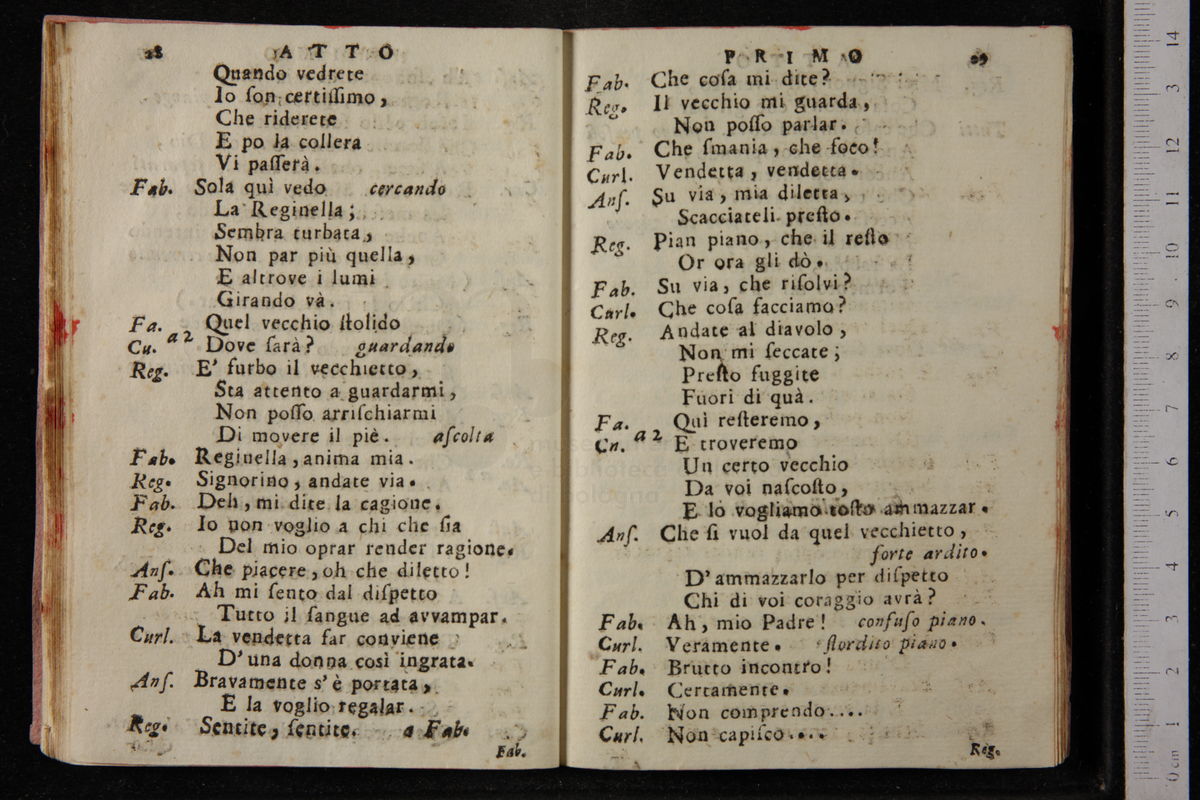 28 ATTO
Quando vedrete
Io ſon certiſſimo,
Che riderete
E po la collera
Vi paſſerà.
Fab. Sola quì vedo cercando
La Reginella;
Sembra turbata,
Non par più quella,
E altrove i lumi
Girando và.
Fa. Quel vecchio ſtolido
Cu. a 2 Dove ſarà? guardando
Reg. E' furbo il vecchietto,
Sta attento a guardarmi,
Non poſſo arriſchiarmi
Di movere il piè. aſcolta
Fab. Reginella, anima mia.
Reg. Signorino, andate via.
Fab. Deh, mi dite la cagione.
Reg. Io non voglio a chi che ſia
Del mio oprar render ragione.
Anſ. Che piacere, oh che diletto!
Fab. Ah mi ſento dal diſpetto
Tutto il ſangue ad avvampar.
Curl. La vendetta far conviene
D'una donna così ingrata.
Anſ. Bravamente s'è portata,
E la voglio regalar.
Reg. Sentite, ſentite. a Fab.
Fab.
PRIMO 29
Fab. Che coſa mi dite?
Reg. Il vecchio mi guarda,
Non poſſo parlar.
Fab. Che ſmania, che foco!
Curl. Vendetta, vendetta.
Anſ. Su via, mia diletta,
Scacciateli preſto.
Reg. Pian piano, che il reſto
Or ora gli dò.
Fab. Su via, che riſolvi?
Curl. Che coſa facciamo?
Reg. Andate al diavolo,
Non mi ſeccate;
Preſto fuggite
Fuori di quà.
Fa. Quì reſteremo,
Cn. a 2 E troveremo
Un certo vecchio
Da voi naſcoſto,
E lo vogliamo toſto ammazzar.
Anſ. Che ſi vuol da quel vecchietto,
forte ardito.
D'ammazzarlo per diſpetto
Chi di voi coraggio avrà?
Fab. Ah, mio Padre! confuſo piano.
Curl. Veramente. ſtordito piano.
Fab. Brutto incontro!
Curl. Certamente.
Fab. Non comprendo....
Curl. Non capiſco....
Reg.